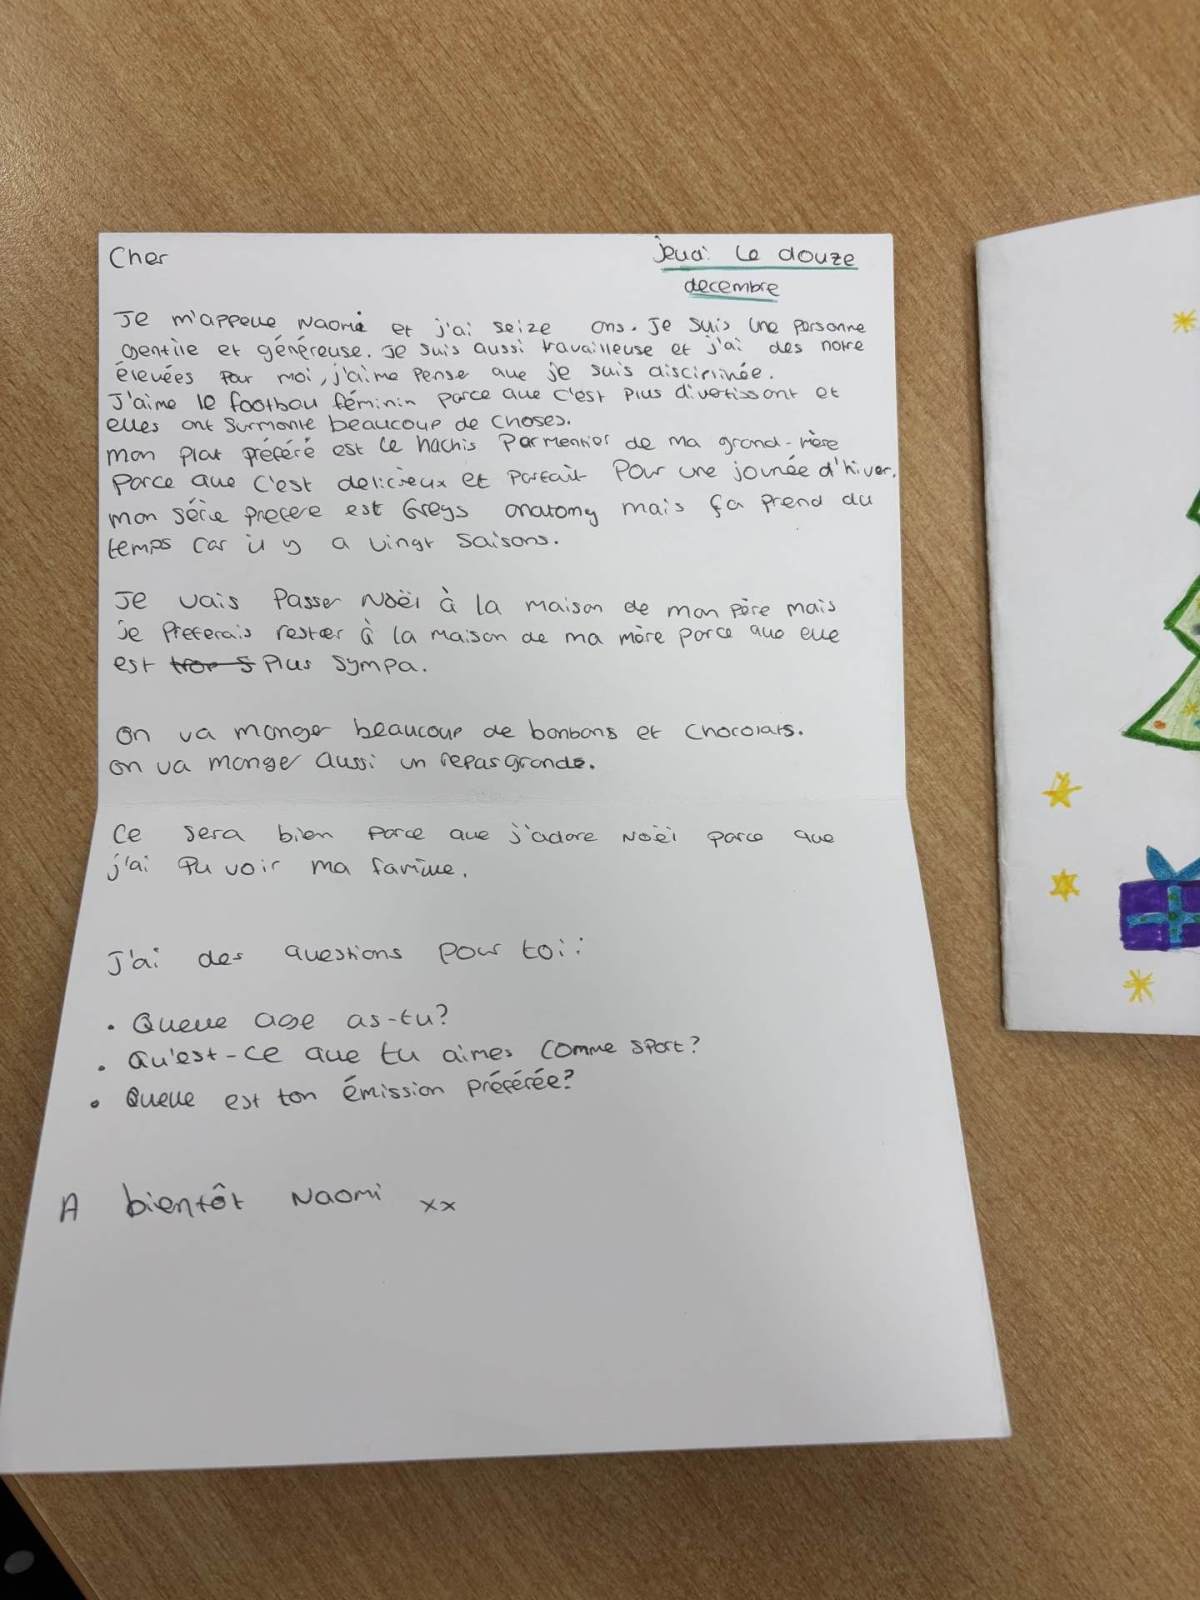 Cher
jeudi le douze
decembre
Je m'appelle Naomi et j'ai seize ans. Je suis une personne
gentile et généreuse. Je suis aussi travailleuse et j'ai des notre
élevées par moi, j'aime pense que je suis disciplinée.
J'aime le football féminin parce que c'est plus divertissant et
elles ont surmonte beaucoup de choses.
mon plat préféré est le hachis Parmentier de ma grand-mère
parce que c'est delicieux et parfait pour une jounée d'hiver.
mon série prefere est Greys anatomy mais ça prend du
temps car il y a vingt saisons.
Je vais passer Noël à la maison de mon père mais
je preferais rester à la maison de ma mère parce que elle
est trop s plus sympa.
On va manger beaucoup de bonbons et chocolats.
on va manger aussi un repas grande.
Ce sera bien parce que j'adore Noël parce que
j'ai pu voir ma famille.
J'ai des questions pour toi:
• Quelle age as-tu?
• Qu'est-ce que tu aimes comme sport?
• Quelle est ton émission préférée?
A bientôt Naomi xx